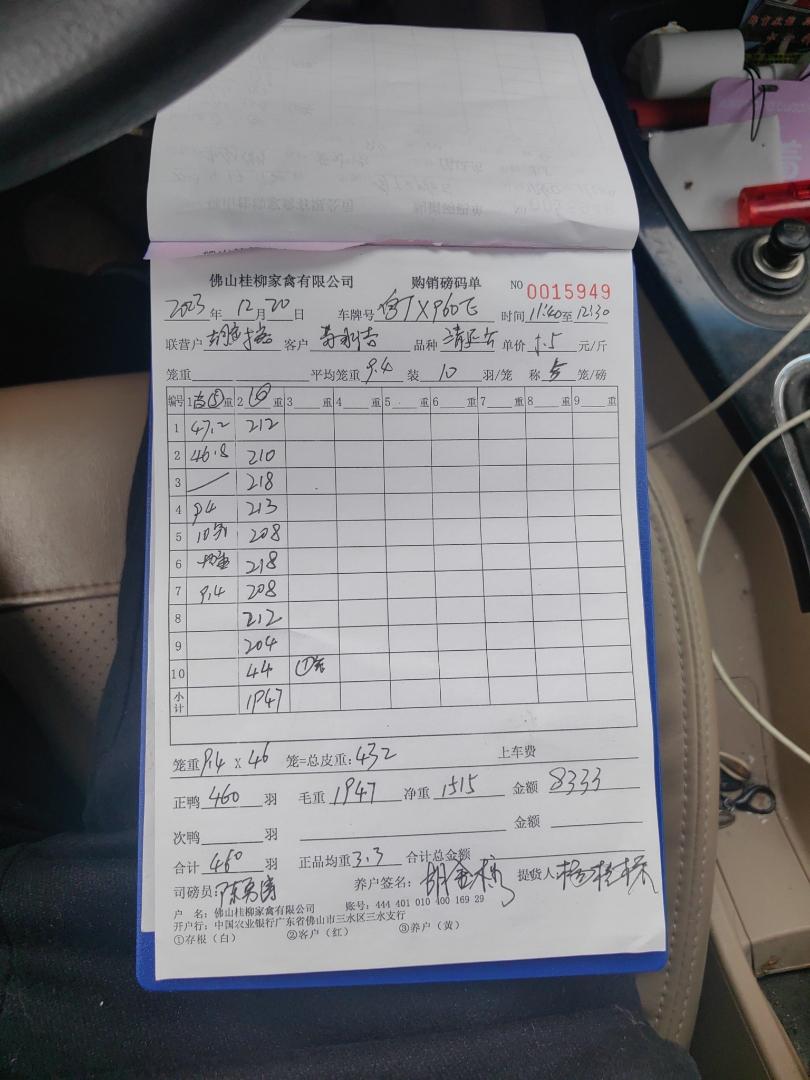 佛山桂柳家禽有限公司 购销磅码单 NO 0015949
2023年12月20日 车牌号 时间 11:40至12:30
联营户 客户 品种 单价 5.5 元/斤
笼重 平均笼重 9.4 装 10 羽/笼 称 5 笼/磅
编号 1 重 2 重 3 重 4 重 5 重 6 重 7 重 8 重 9 重
1 47.2 212
2 46.8 210
3 218
4 9.4 213
5 10 208
6 均重 218
7 9.4 208
8 212
9 204
10 44 ①
小计 1947
笼重 9.4 X 46 笼=总皮重: 432 上车费
正鸭 460 羽 毛重 1947 净重 1515 金额 8333
次鸭 羽 金额
合计 460 羽 正品均重 3.3 合计总金额
司磅员: 养户签名: 提货人
户 名: 佛山桂柳家禽有限公司 账号: 444 401 010 400 169 29
开户行: 中国农业银行广东省佛山市三水区三水支行
①存根（白） ②客户（红） ③养户（黄）